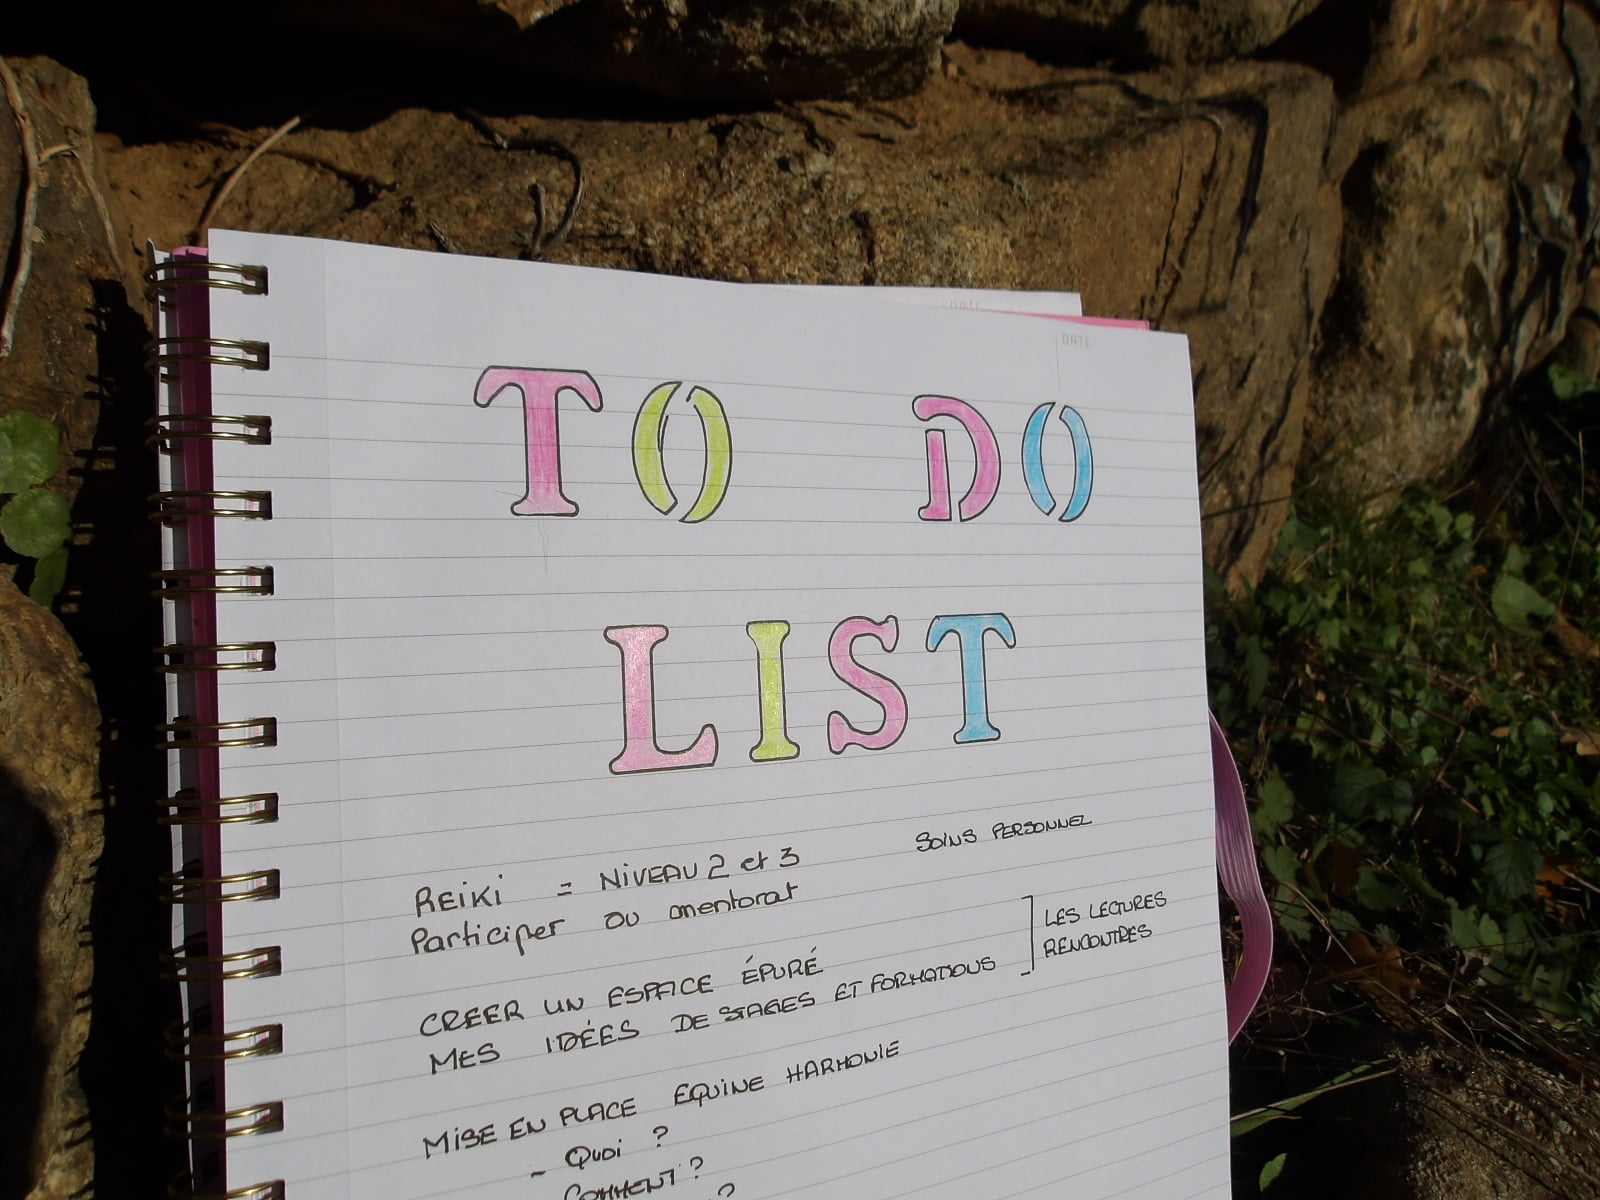 DATE
DATE
TO DO
LIST
SOINS PERSONNEL
REIKI = NIVEAU 2 et 3
Participer ou mentorat
LES LECURES
RENCONTRES
CREER UN ESPACE ÉPURÉ
MES IDÉES DE STAGES ET FORMATIONS
MISE EN PLACE EQUINE HARMONIE
- Quoi ?
COMMENT ?
?